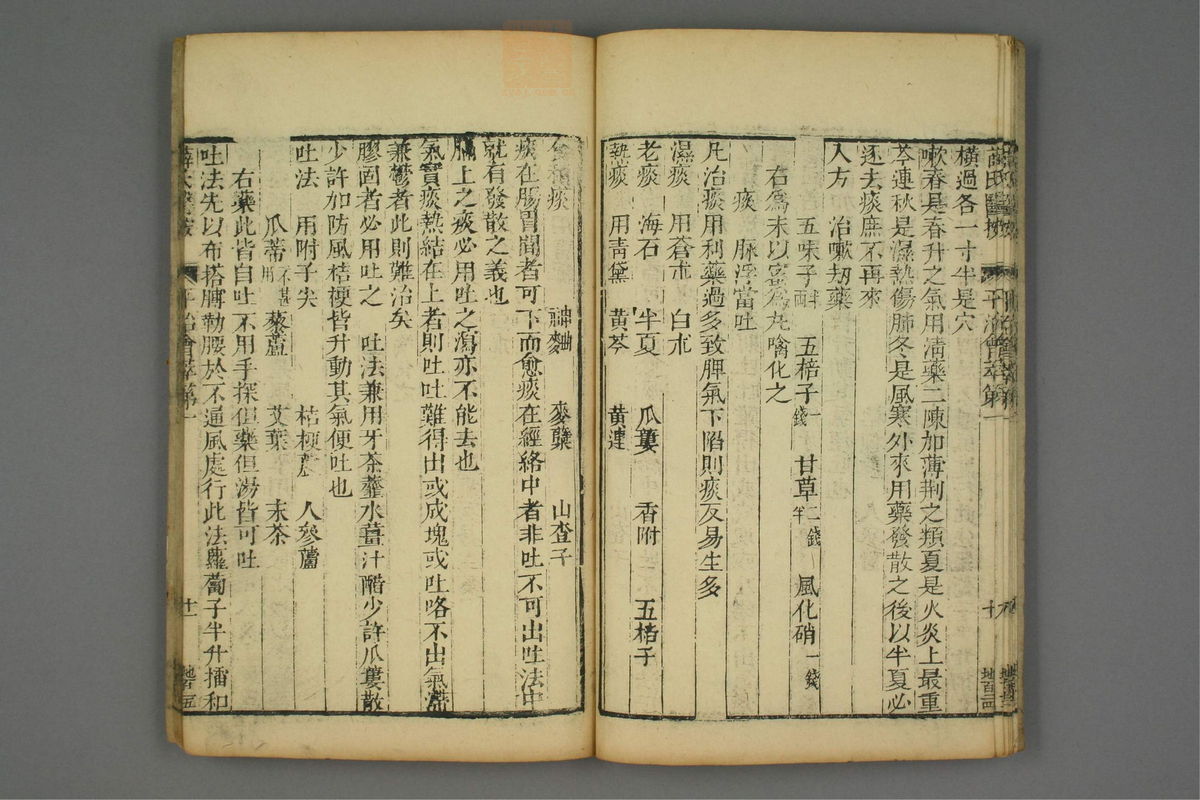 橫過各一寸半是穴
嗽春是春升之氣用淸藥二陳加薄荆之類夏是火炎上最重
芩連秋是濕熱傷肺冬是風寒外來用藥發散之後以半夏必
逐去痰庶不再來
入方 治嗽刼藥
五味子半兩 五棓子一錢 甘草二錢半 風化硝一錢
右爲末以蜜爲丸噙化之
痰 脉浮當吐
凡治痰用利藥過多致脾氣下陷則痰反易生多
濕痰 用蒼朮 白朮
老痰 海石 半夏 瓜蔞 香附 五棓子
熱痰 用靑黛 黃芩 黃連
食積痰 神麴 麥糵 山查子
痰在腸胃間者可下而愈痰在經絡中者非吐不可出吐法中
就有發散之義也
膈上之痰必用吐之瀉亦不能去也
氣實痰熱結在上者則吐吐難得出或成塊或吐咯不出氣滯
兼鬱者此則難治矣
膠固者必用吐之 吐法兼用牙茶虀水薑汁醋少許瓜蔞散
少許加防風桔梗皆升動其氣便吐也
吐法 用附子尖 桔梗蘆 人參蘆
瓜蒂不甚用 藜蘆 艾葉 末茶
右藥此皆自吐不用手探但藥但湯皆可吐
吐法先以布搭膊勒腰於不通風處行此法蘿蔔子半升擂和
薛氏醫按 平治會萃第一 十一
平治會萃第一 十 地百三